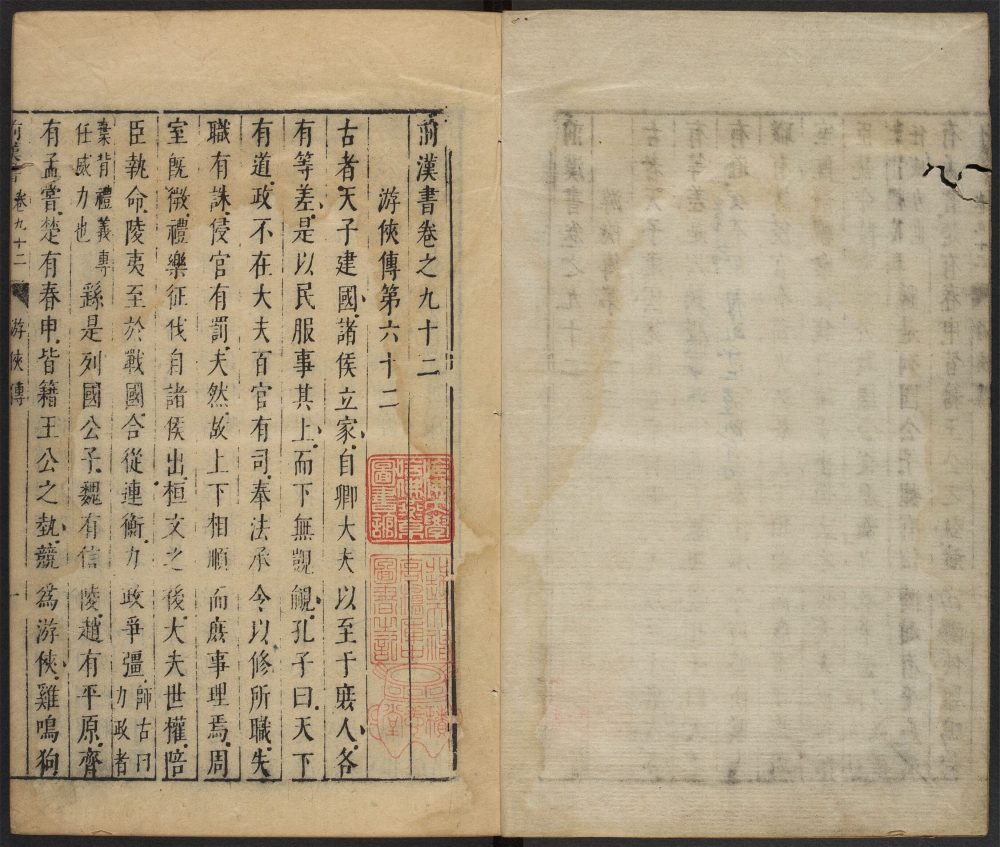 前漢書卷之九十二
游俠傳第六十二
古者天子建國諸侯立家自卿大夫以至于庶人各
有等差是以民服事其上而下無覬覦孔子曰天下
有道政不在大夫百官有司奉法承令以修所職失
職有誅侵官有罰夫然故上下相順而庶事理焉周
室既微禮樂征伐自諸侯出桓文之後大夫世權陪
臣執命陵夷至於戰國合從連衡力政爭彊師古曰力政者
棄背禮義專任威力也繇是列國公子魏有信陵趙有平原齊
有孟嘗楚有春申皆籍王公之埶競為游俠雞鳴狗
前漢書卷九十二 游俠傳 一
圖書館